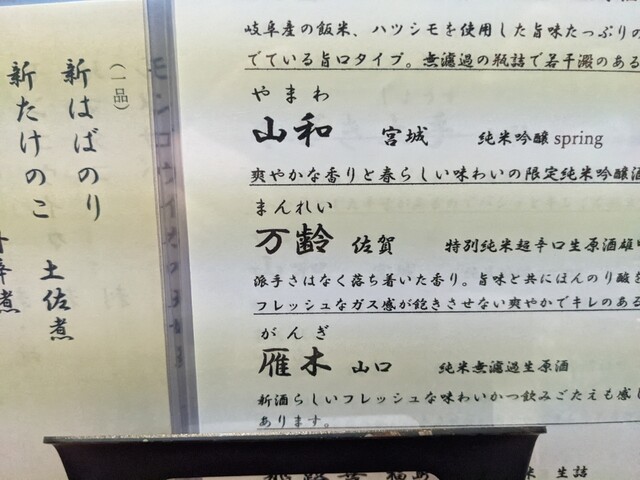 岐阜産の飯米、ハツシモを使用した旨味たっぷりの
でている旨口タイプ。無濾過の瓶詰で若干澱のある
やまわ
山和 宮城 純米吟醸 spring
爽やかな香りと春らしい味わいの限定純米吟醸酒
まんれい
万齢 佐賀 特別純米超辛口生原酒雄町
派手さはなく落ち着いた香り。旨味と共にほんのり酸を
フレッシュなガス感が飽きさせない爽やかでキレのある
がんぎ
雁木 山口 純米無濾過生原酒
新酒らしいフレッシュな味わいかつ飲みごたえも感じ
あります。
生詰
(一品)
新はばのり
新たけのこ 土佐煮